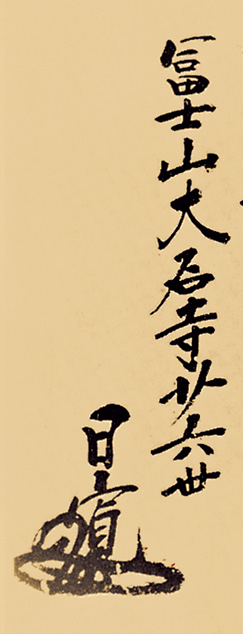 冨士山大石寺廿六世
日寛